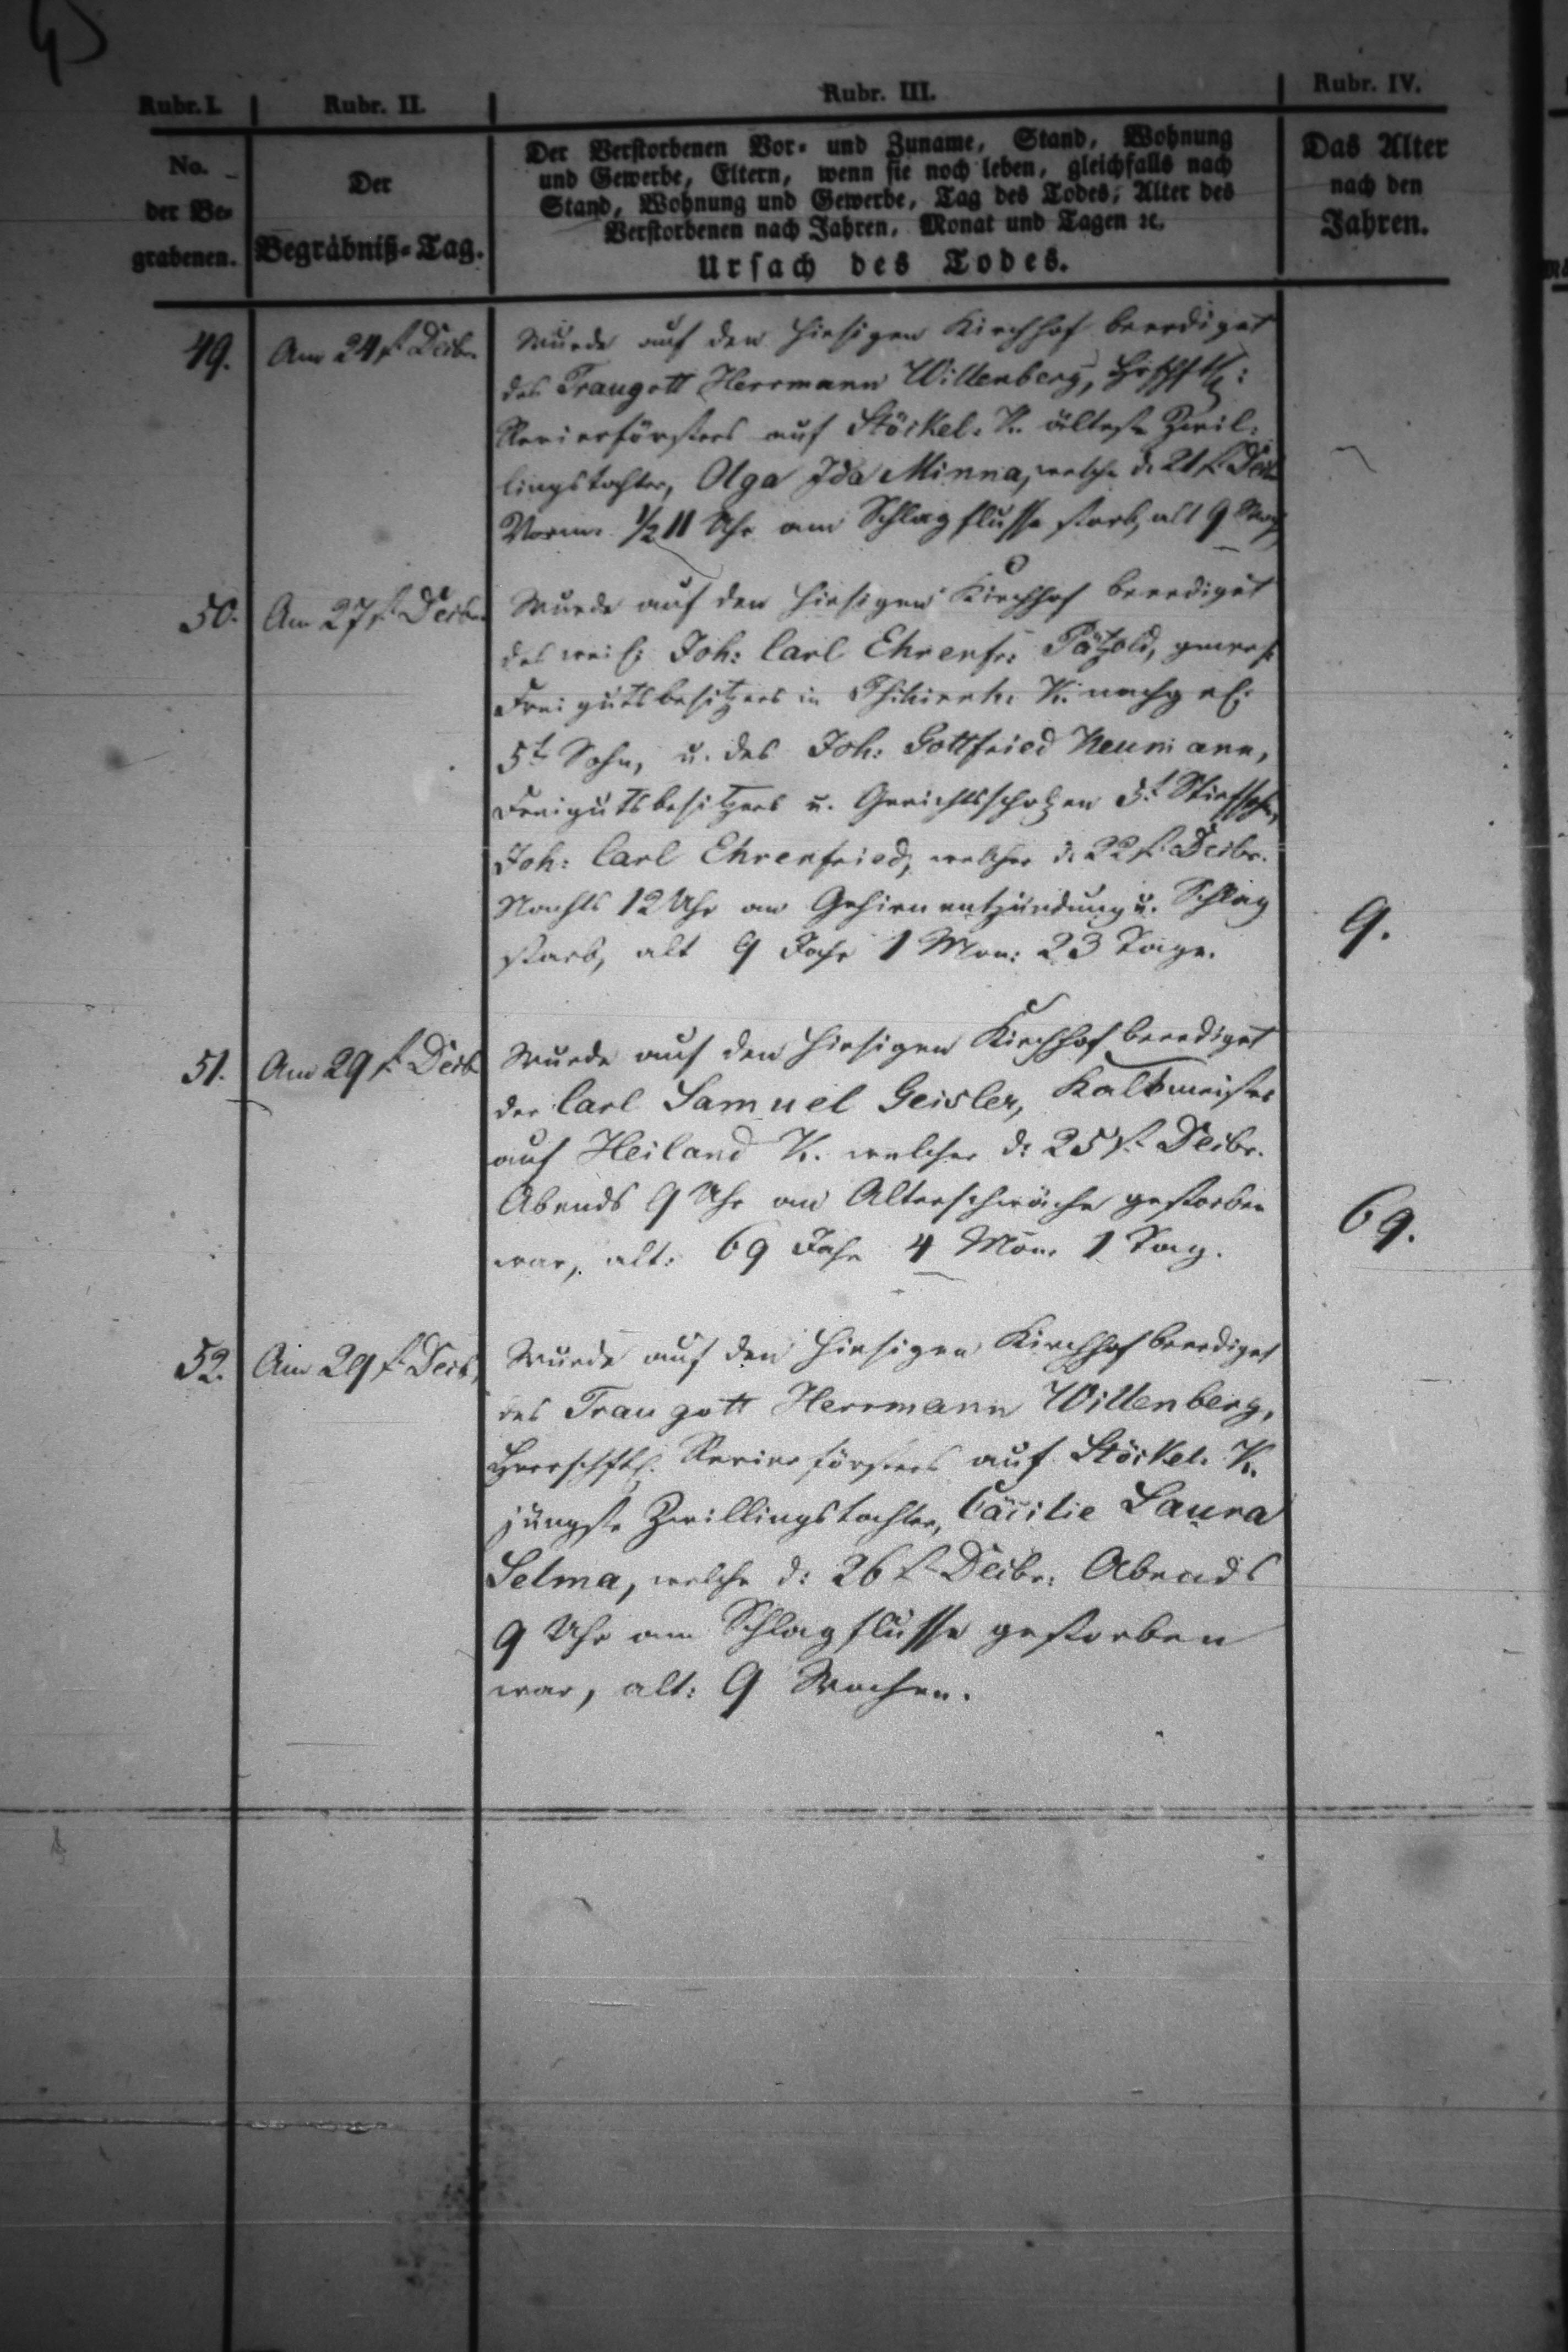 Rubr. I. Rubr. II. Rubr. III. Rubr. IV.
No.
der Be-
grabenen.
Der
Begräbniß-Tag.
Der Verstorbenen Vor- und Zuname, Stand, Wohnung
und Gewerbe, Eltern, wenn sie noch leben, gleichfalls nach
Stand, Wohnung und Gewerbe, Tag des Todes, Alter des
Verstorbenen nach Jahren, Monat und Tagen ꝛc.
Ursach des Todes.
Das Alter
nach den
Jahren.
49. Am 24st Decbr. Wurde auf den hiesigen Kirchhof beerdiget
des Traugott Herrmann Willenberg,
Revierförsters auf Stöckel. K. älteste Zwil-
lingstochter, Olga Ida Minna, welche d. 21st Decb
Vorm. 1/2 11 Uhr am Schlagflusse starb, alt 9 Woch
50. Am 27st Decbr. Wurde auf den hiesigen Kirchhof beerdiget
des weil: Joh: Carl Ehrenfr: Pätzold, gewes:
Freigutsbesitzers in K. nachgel:
5t Sohn, u. des Joh: Gottfried Neumann,
Freigutsbesitzers u. Gerichtsscholzen 5t Stiefsohn,
Joh: Carl Ehrenfried, welcher d. 22st Decbr.
Nachts 12 Uhr an Gehirnentzündung u. Schlag
starb, alt 9 Jahr 1 Mon: 23 Tage. 9.
51. Am 29st Decb Wurde auf den hiesigen Kirchhof beerdiget
der Carl Samuel Geisler, Kalkmeister
auf Heiland K. welcher d: 25st Decbr.
Abends 9 Uhr an Alterschwäche gestorben
war, alt: 69 Jahr 4 Mon. 1 Tag. 69.
52. Am 29st Decb, Wurde auf den hiesigen Kirchhof beerdiget
des Traugott Herrmann Willenberg,
Herrschftl. Revierförsters auf Stöckel. K.
jüngste Zwillingstochter, Cäcilie Laura
Selma, welche d: 26st Decbr: Abends
9 Uhr am Schlagflusse gestorben
war, alt: 9 Wochen.